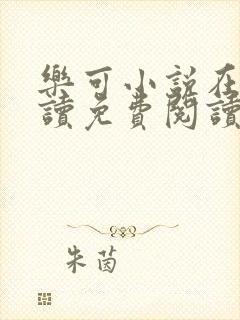 樂可小說在
讀免費閱讀
朱茵